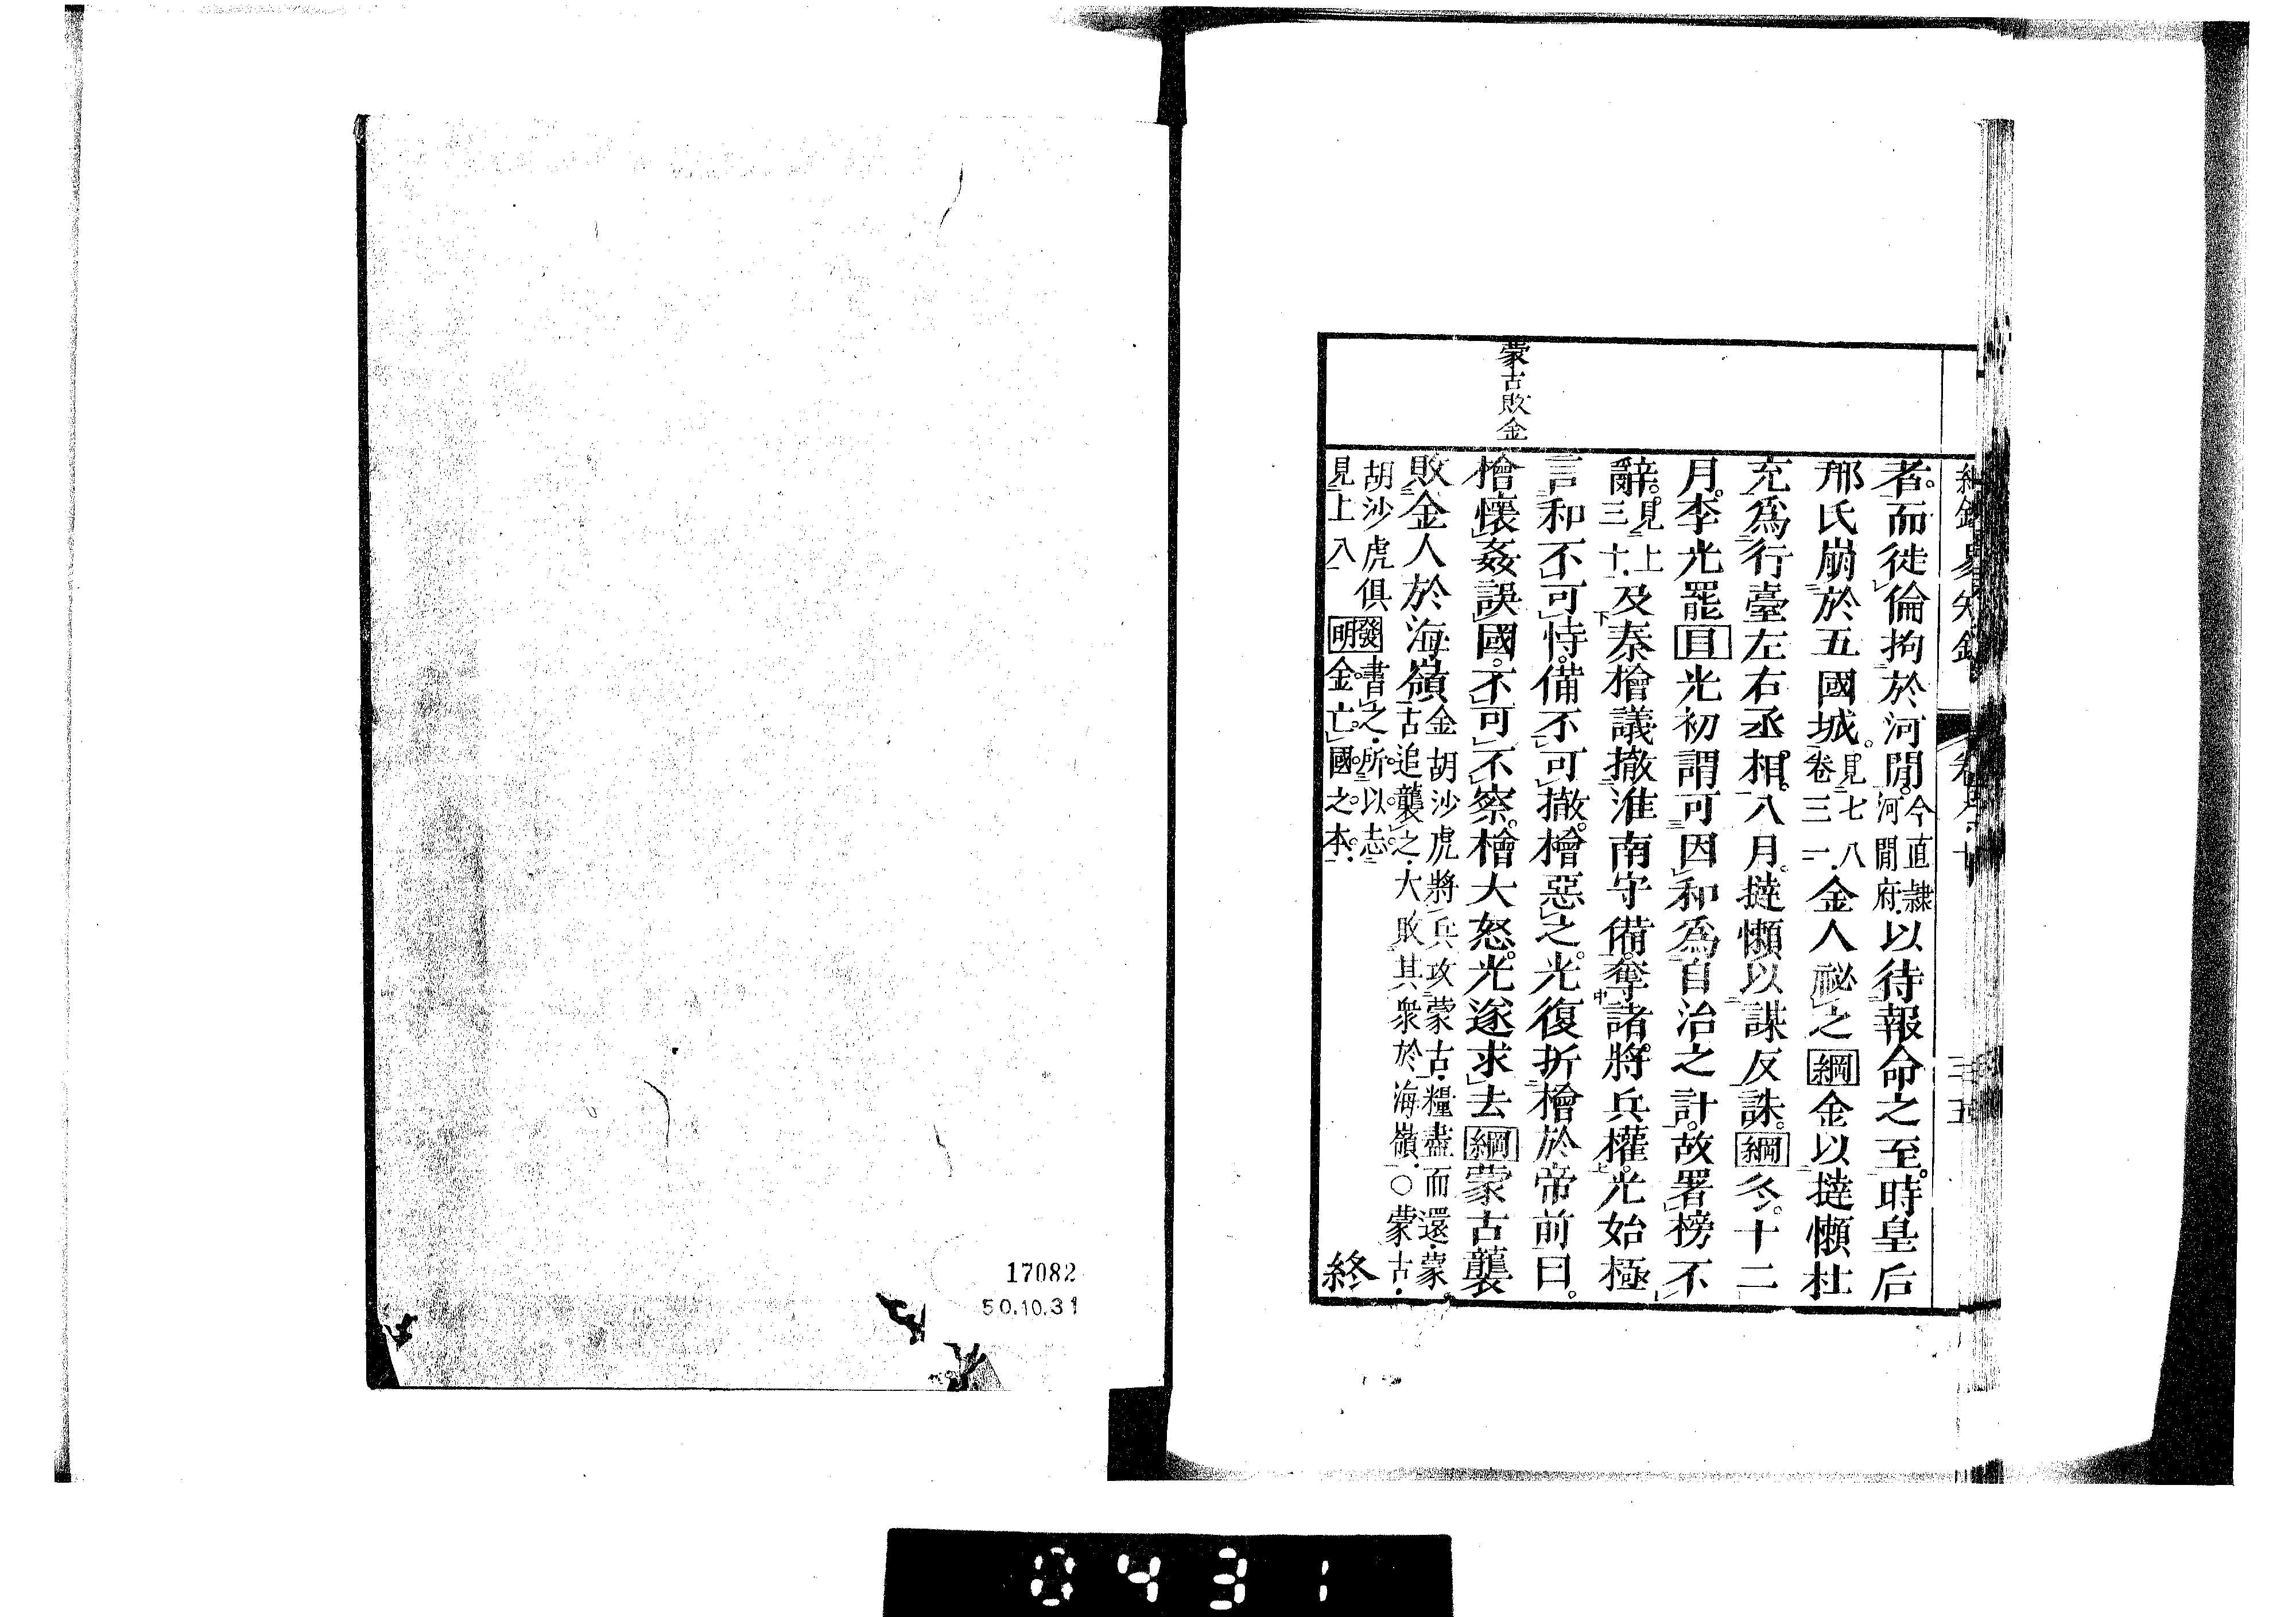 蒙古敗金
者。而徙倫拘於河閒。今直隷河閒府。以待報命之至。時皇后
邢氏崩於五國城。見七八卷三一。金人祕之綱金以撻懶杜
充爲行臺左右丞相。八月。撻懶以謀反誅。綱冬。十二
月。李光罷目光初謂可因和爲自治之計。故署榜不
辭。見上三十。及秦檜議撤淮南守備。奪諸將兵權。光始極
言和不可恃。備不可撤。檜惡之。光復折檜於帝前曰。
檜懷姦誤國。不可不察。檜大怒。光遂求去綱蒙古襲
敗金人於海嶺金胡沙虎將兵攻蒙古。糧盡而還。蒙古追襲之。大敗其衆於海嶺。○蒙古。
胡沙虎俱見上八發明書之。所以志金亡國之本。
終
17082
50.10.31
0431